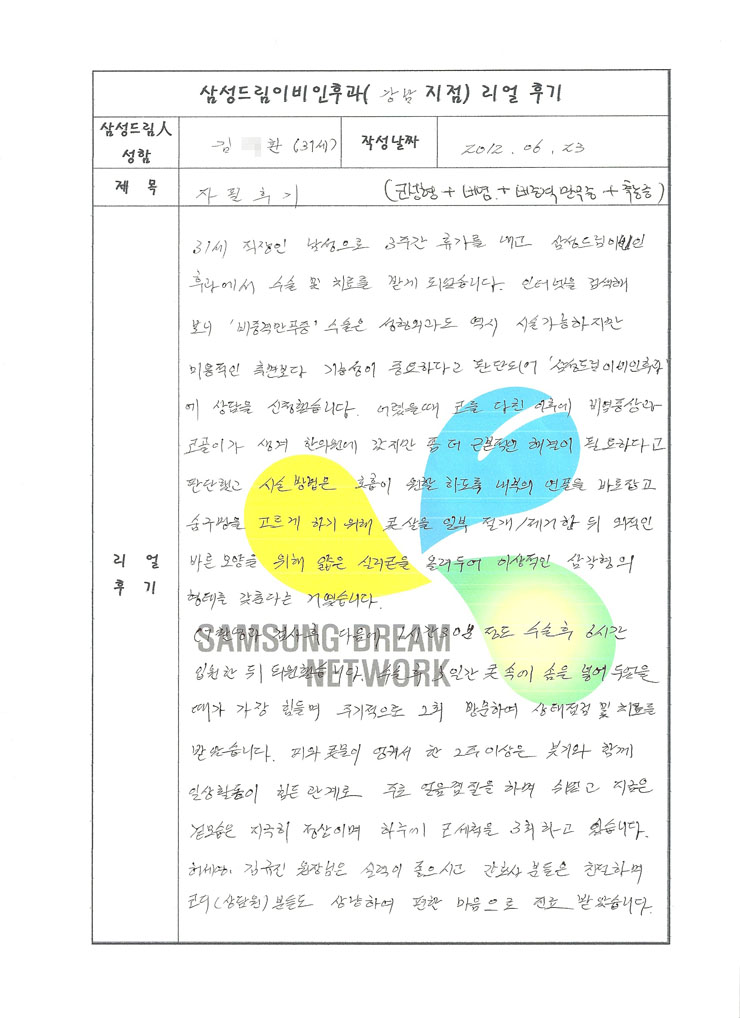 삼성드림이비인후과( 강남 지점) 리얼 후기
삼성드림人 성함
김 환 (31세)
작성날짜
2012. 06. 23
제 목
자필후기
(코성형 + 비염 + 비중격만곡증 + 축농증)
리 얼
후 기
31세 직장인 남성으로 3주간 휴가를 내고 삼성드림이비인
후과에서 수술 및 치료를 받게 되었습니다. 인터넷을 검색해
보니 '비중격만곡증' 수술은 성형외과도 역시 시술가능하지만
미용적인 측면보다 기능성이 중요하다고 판단되어 '삼성드림이비인후과'
에 상담을 신청했습니다. 어렸을때 코를 다친 이후에 비염증상과
코골이가 생겨 한의원에 갔지만 좀 더 근본적인 해결이 필요하다고
판단했고 시술방법은 호흡이 원활 하도록 내부의 연골을 바로잡고
숨구멍을 고르게 하기 위해 콧살을 일부 절개/제거한 뒤 외적인
바른 모양을 위해 얇은 실리콘을 올려두어 이상적인 삼각형의
형태를 갖춘다는 거였습니다.
검사 후 다음에 1시간30분 정도 수술후 6시간
입원한 뒤 퇴원했습니다. 수술 후 일간 콧속에 솜을 넣어 두었을
때가 가장 힘들며 주기적으로 2회 방문하여 상태점검 및 치료를
받았습니다. 피와 콧물이 엉켜서 한 2주이상은 붓기와 함께
일상활동이 힘든 관계로 주로 얼음찜질을 하며 쉬었고 지금은
겉모습은 지극히 정상이며 하루에 코세척을 3회 하고 있습니다.
김규진 원장님은 실력이 좋으시고 간호사 분들은 친절하며
코디(상담원)분들도 상냥하여 편한 마음으로 진료 받았습니다.
SAMSUNG DREAM
NETWORK